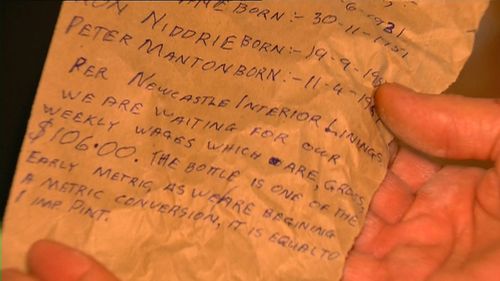 BORN:- 30-11-1951
RON NIDDRIE BORN:- 19-9-19
PETER MANTON BORN:- 11-4-19
PER NEWCASTLE INTERIOR LININGS
WE ARE WAITING FOR OUR
WEEKLY WAGES WHICH ARE, GROSS,
$106.00. THE BOTTLE IS ONE OF THE
EARLY METRIC, AS WE ARE BEGINING
A METRIC CONVERSION, IT IS EQUAL TO
1 IMP. PINT.